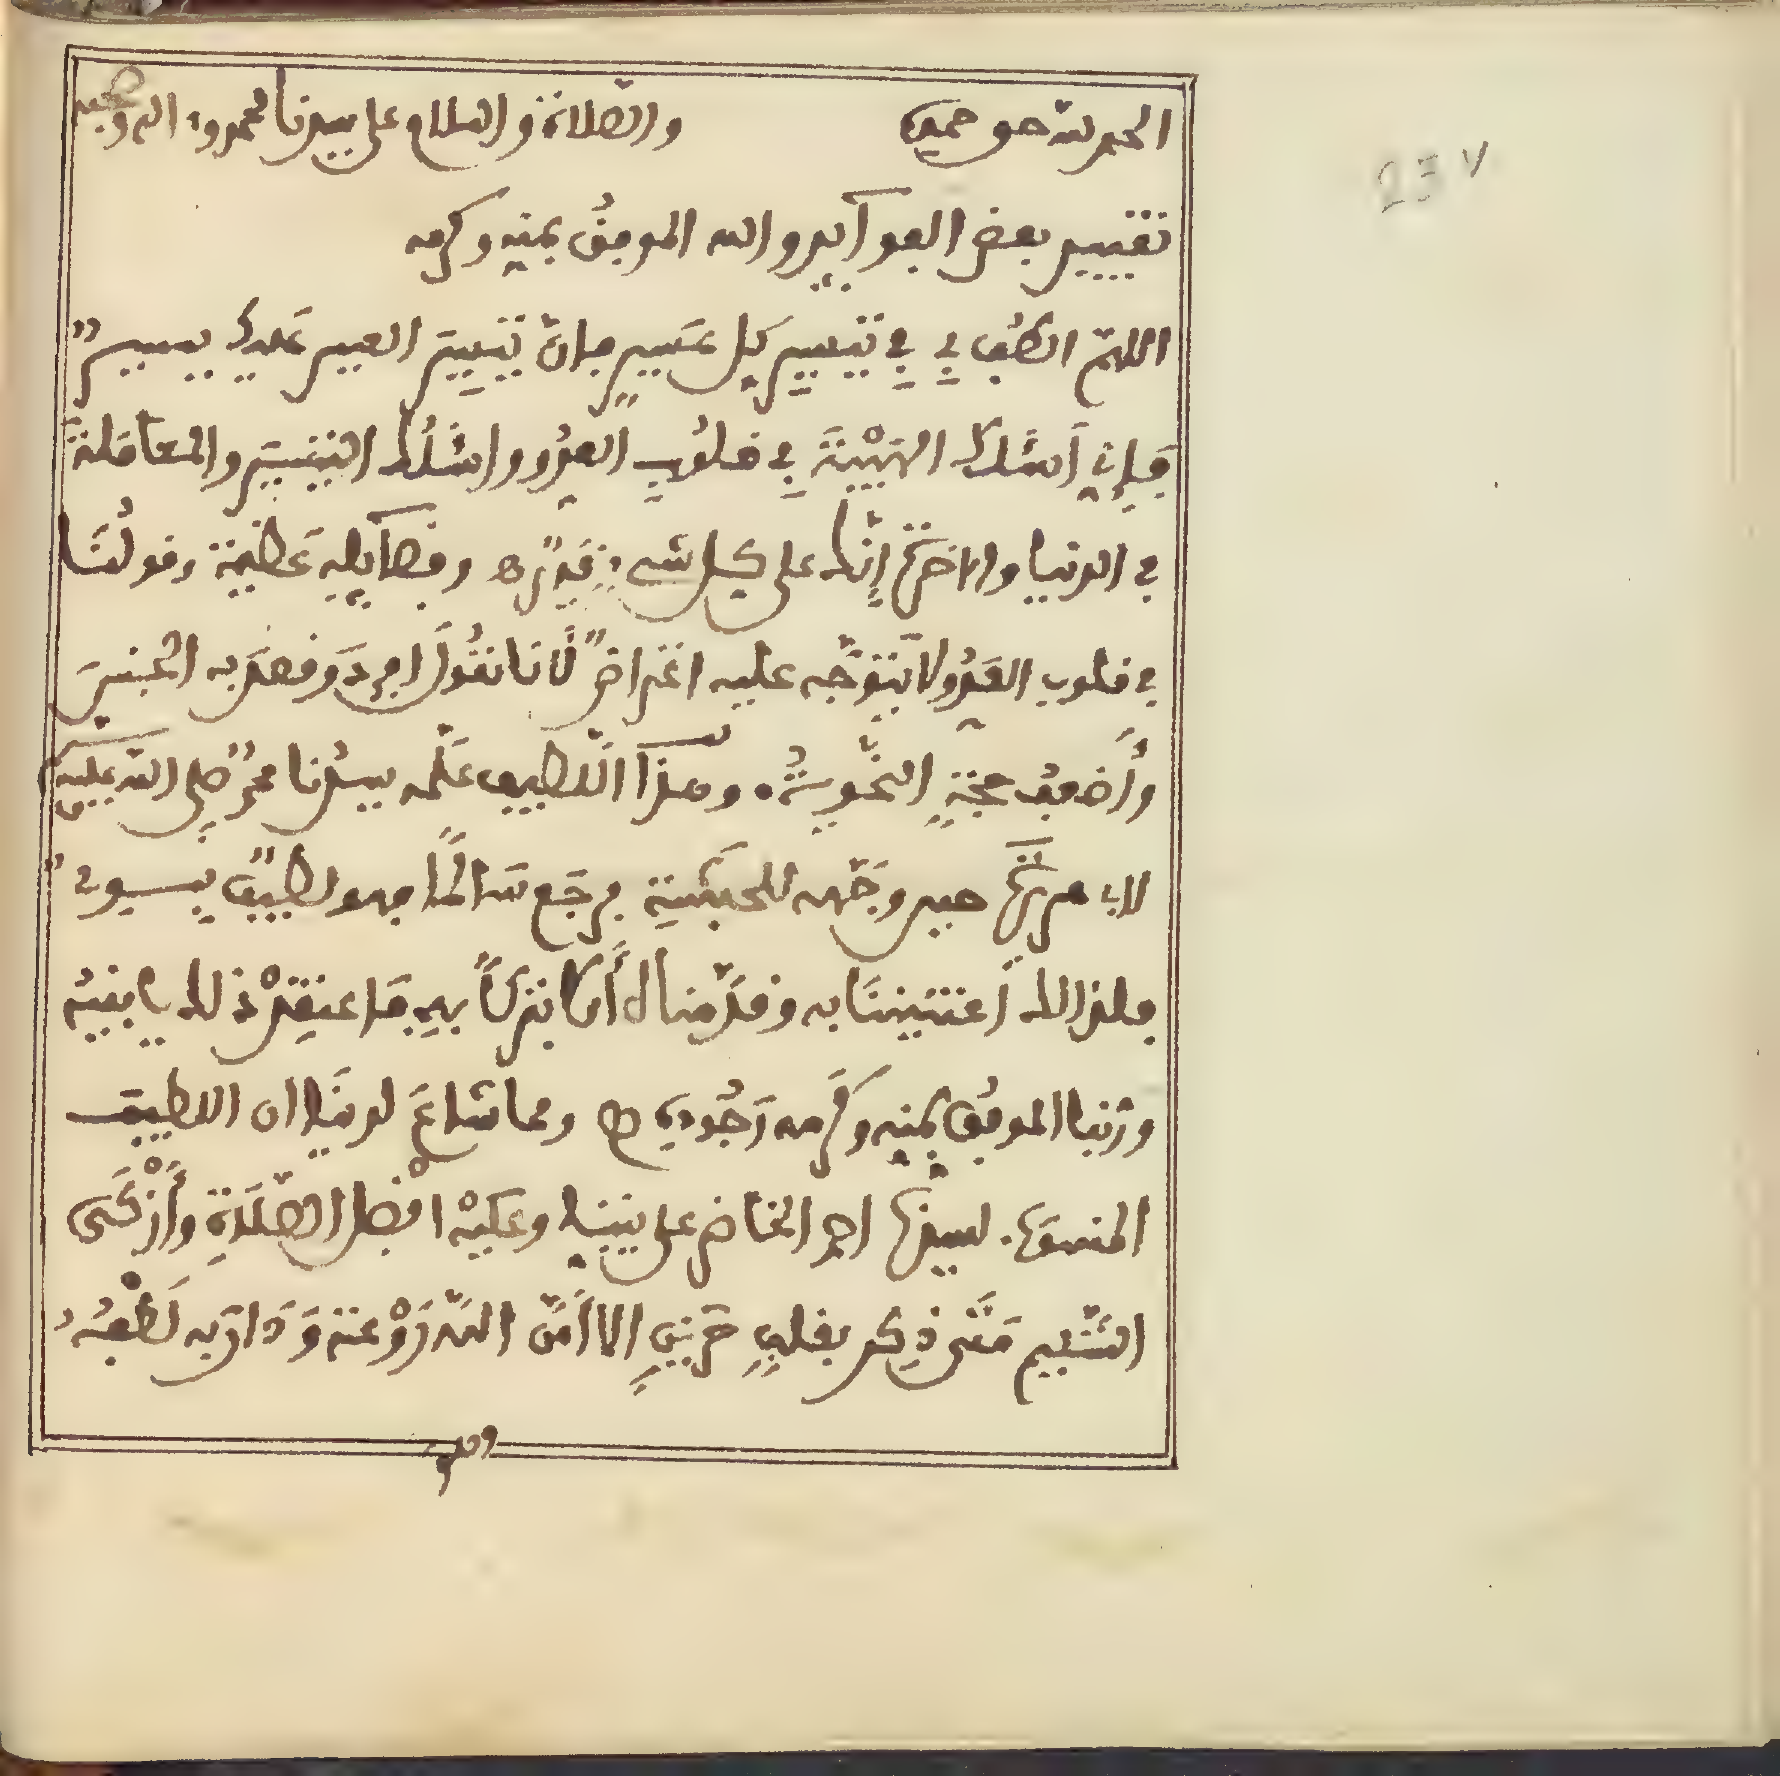 الحمد لله حق حمده والصلاة والسلام على سيدنا محمد وآله وصحبه
تقييد بعض الفوآيد والله الموفق بمنه وكرمه
اللهم الطف بي في تيسير كل عسير فإن تيسير العسير عليك يسير
فإني أسئلك الهيبة في قلوب العدو واسئلك التيسير والمعافاة
في الدنيا والاخرة إنك على كل شيء قدير ه وفضآيله عظيمة وقولنا
في قلوب العدو لا يتوجه عليه اعتراض لأنا نقول افرد وقصد به الجنس
وأضعف حجة النحويين وهذا اللطيف علمه سيدنا محمد صلى الله عليه
لاب هريرة حين وجهه للحبشة فرجع سالما فهو لطيف
فلذالك اعتنينا به وقدمناه تبركا به فاعتقد ذلك بانيه
وربنا الموفق بمنه وكرمه وجوده ه ومما شاع لدينا ان اللطيف
المنسوب لسيدنا الخاضر على نبينا وعليه افضل الصلاة وأزكى
التسليم متى ذكر بقلب حزين الا أمن الله روعه وداربه لطفه
ومن
237